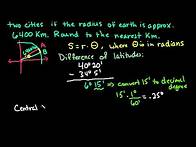 two cities if the radius of earth is approx.
6400 Km. Round to the nearest Km.
S = r·Θ, where Θ is in radians
Difference of latitudes:
40° 20'
- 34° 5'
6° 15' → convert 15' to decimal
degree
15' · 1°/60' = .25°
Central
A
B